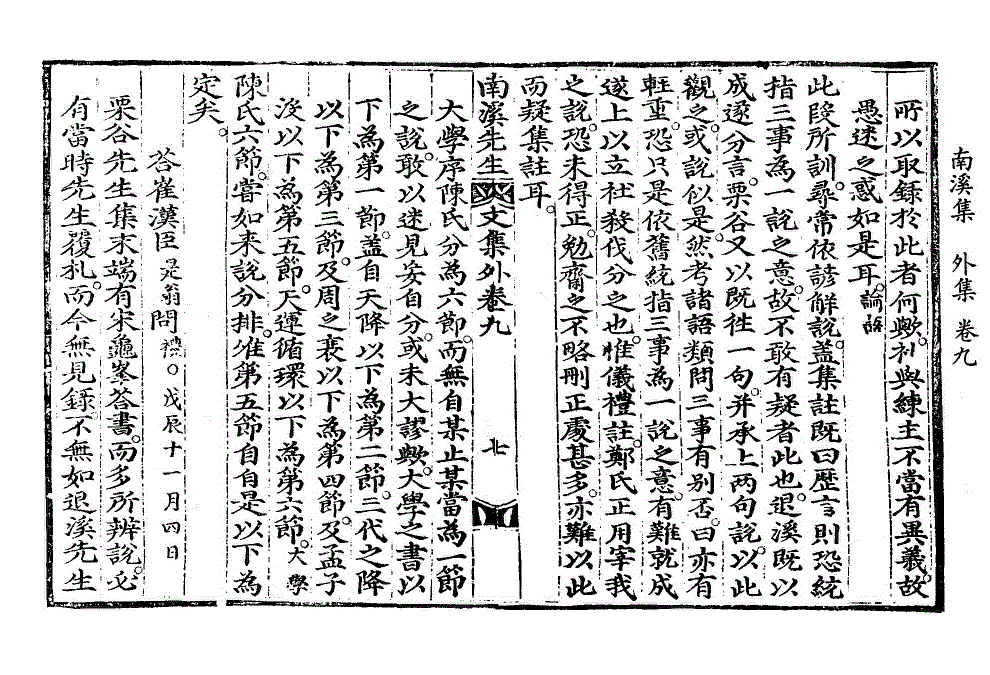 南溪集　外集　卷九
所以取錄於此者何歟。礼與練主不當有異義。故
愚迷之惑如是耳。論語
此段所訓。尋常依諺解說。盖集註旣曰歷言則恐統
指三事為一說之意。故不敢有疑者此也。退溪旣以
成遂分言。栗谷又以旣徃一句。并承上两句說。以此
觀之。或說似是。然考諸語類。問三事有別否。曰亦有
軽重。恐只是依舊統指三事為一說之意。有難就成
遂上以立社殺伐分之也。惟儀禮註。鄭氏正用宰我
之說。恐未得正。勉齋之不略刪正處甚多。亦難以此
而疑集註耳。
南溪先生文集外卷九
大學序陳氏分為六節。而無自某止某當為一節
之說。敢以迷見妄自分。或未大謬歟。大學之書以
下為第一節。盖自天降以下為第二節。三代之降
以下為第三節。及周之衰以下為第四節。及孟子
沒以下為第五節。天運循環以下為第六節。大學
陳氏六節。當如来說分排。惟第五節自自是以下為
定矣。
答崔漢臣是翁問禮○戊辰十一月四日
栗谷先生集末端有宋龜峯答書。而多所辨說。必
有當時先生覆札。而今無見錄。不無如退溪先生